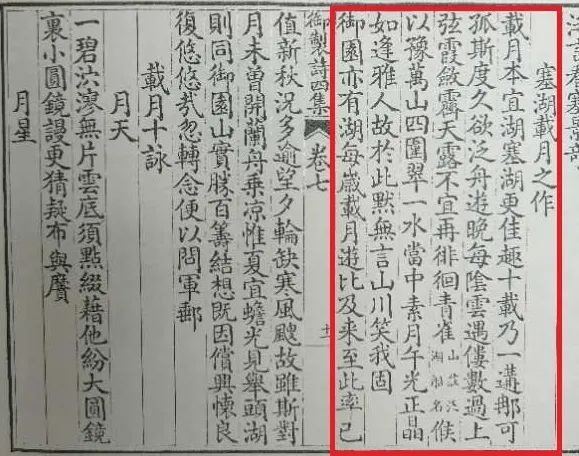 塞湖載月之作
載月本宜湖塞湖更佳趣十載乃一遘那可
孤斯度久欲泛舟遊晚每陰雲遇僂數過上
弦霞斂霽天露不宜再徘徊青雀山莊泛湖船名俟
以豫萬山四圍翠一水當中素月午光正晶
如逢雅人故於此默無言山川笑我固
御園亦有湖每歲載月遊比及来至此率已
御製詩四集 卷七 十一
值新秋況多逾望夕輪缺寒風颼故雖斯對
月未曾開蘭舟乘凉惟夏宜蟾光見舉頭湖
則同御園山實勝百籌結想既因償興懐良
復悠悠哉忽轉念便以問軍郵
載月十詠
月天
一碧泬漻無片雲底須點綴藉他紛大圓鏡
裏小圓鏡謾更猜疑布與黂
月星